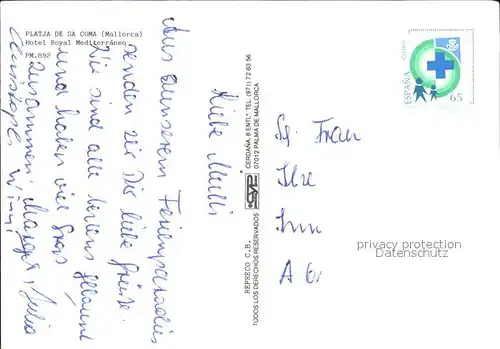 PLATJA DE SA COMA (Mallorca)
Hotel Royal Mediterráneo
PM.892
Liebe Mutti
Aus unserem Ferienparadies
senden wir Dir liebe Grüsse.
Wir sind alle bestens gelaunt
und haben viel Spass
zusammen. Margrit, Julia
REPRECO C.B.
TODOS LOS DERECHOS RESERVADOS
CERDAÑA, 8 ENTL.º TEL. (971) 72 63 56
07012 PALMA DE MALLORCA
correos
ESPAÑA
65
Frau
privacy protection
Datenschutz